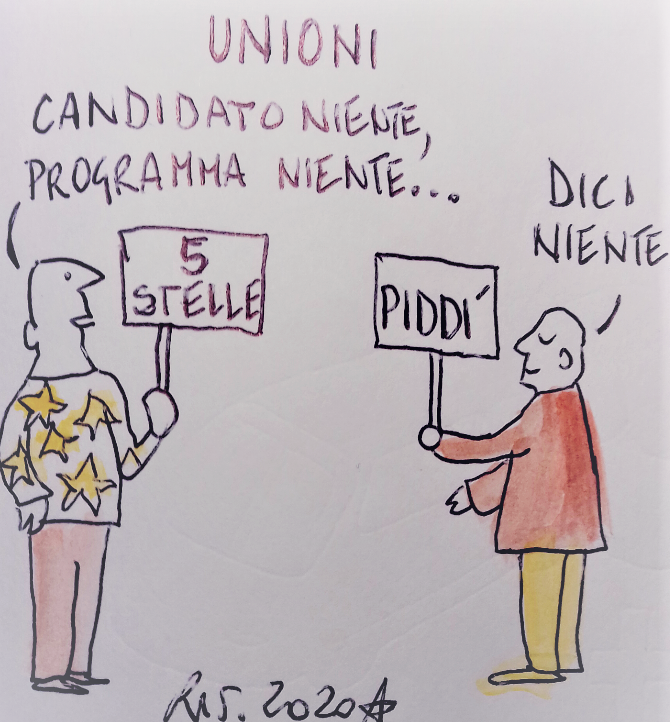 UNIONI
CANDIDATO NIENTE,
PROGRAMMA NIENTE...
DICI
NIENTE
5
STELLE
PIDDI´
2020